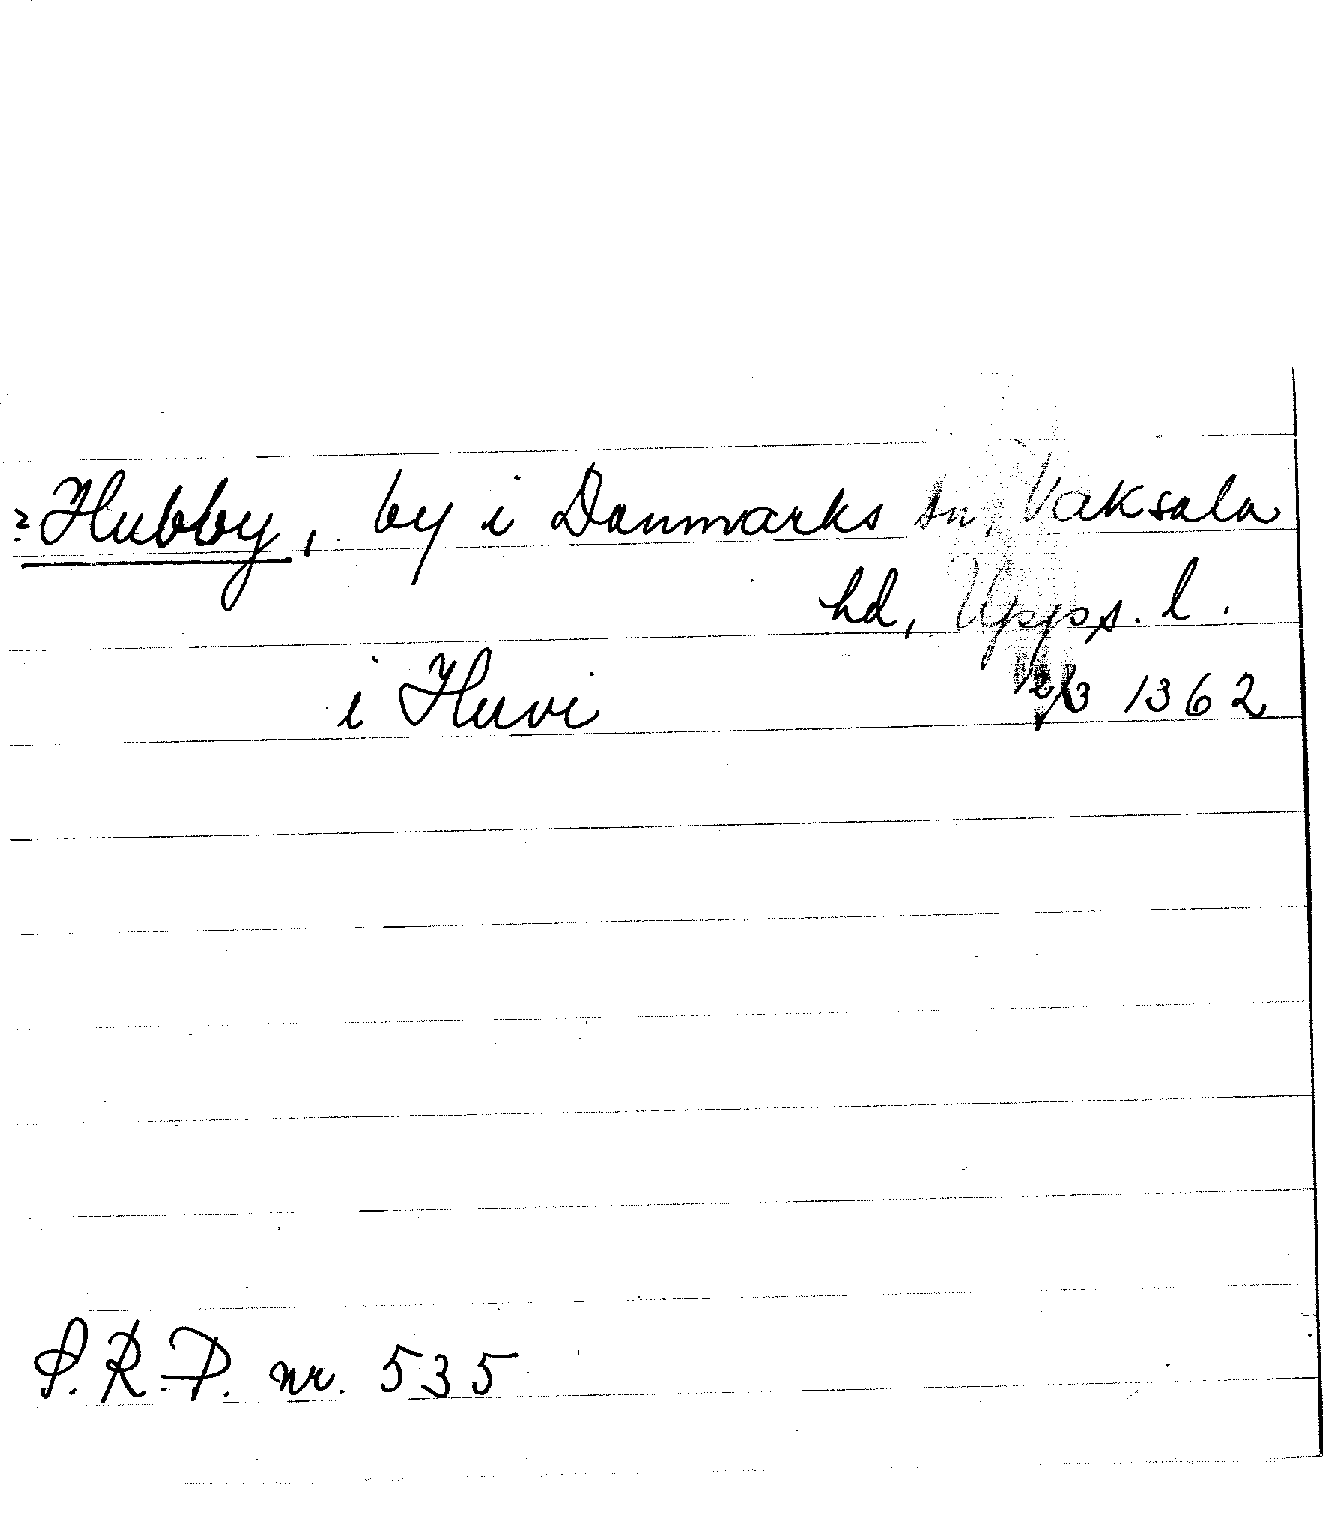 ? Hubby, by i Danmarks sn, Vaksala
hd, Upps. l.
i Huvi 1362
S.R.P. nr. 535